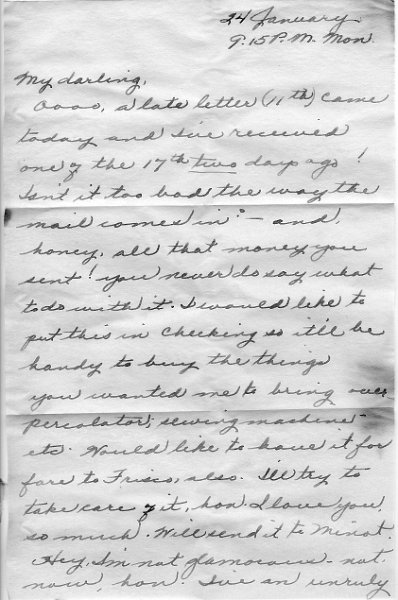 24 January
9:15 P.M. Mon.
My darling,
Oooo, a late letter (11th) came
today and I've received
one of the 17th two days ago!
Isn't it too bad the way the
mail comes in? - and,
honey, all that money you
sent! you never do say what
to do with it. I would like to
put this in Checking so it'll be
handy to buy the things
you wanted me to bring over
percolator, sewing machine -
etc. Would like to have it for
fare to Frisco, also. I'll try to
take care of it, hon. I love you,
so much. Will send it to Minot.
Hey, I'm not glamorous - not
now, hon. I've an unruly